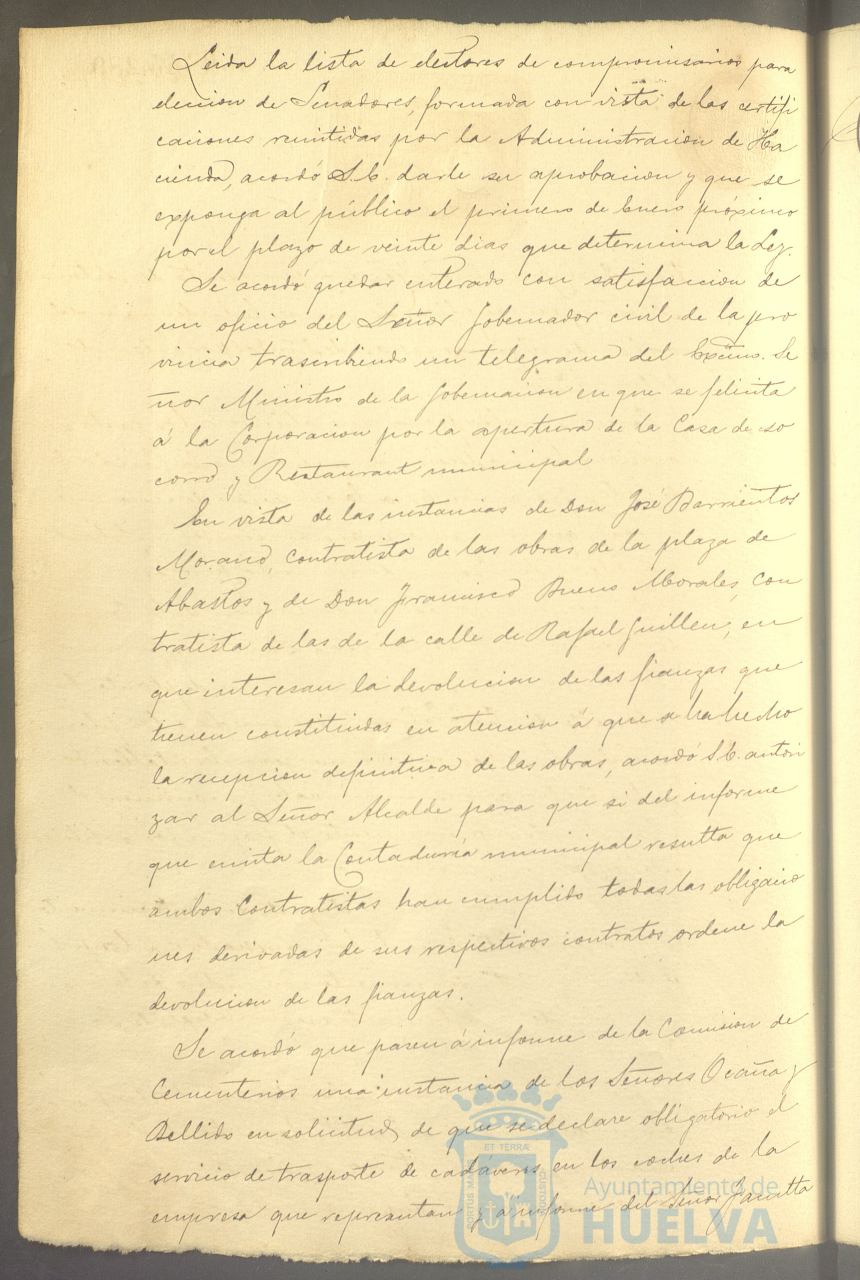 Leida la lista de electores de compromisarios para
eleccion de Senadores, formada con vista de las certifi
caciones remitidas por la Administracion de Ha
cienda, acordó S.E. darle su aprobacion y que se
exponga al público el primero de Enero próximo
por el plazo de veinte dias que determina la Ley.
Se acordó quedar enterado con satisfaccion de
un oficio del Señor Gobernador civil de la pro
vincia trascribiendo un telegrama del Excmo. Se
ñor Ministro de la Gobernacion en que se felicita
á la Corporacion por la apertura de la Casa de so
corro y Restaurant municipal
En vista de las instancias de Don José Barrientos
Morano, contratista de las obras de la plaza de
Abastos y de Don Francisco Bueno Morales, con
tratista de las de la calle de Rafael Guillen, en
que interesan la devolucion de las fianzas que
tienen constituidas en atencion á que se ha hecho
la recepcion definitiva de las obras, acordó S.E. autori
zar al Señor Alcalde para que si del informe
que emita la Contaduría municipal resulta que
ambos Contratistas han cumplido todas las obligacio
nes derivadas de sus respectivos contratos ordene la
devolucion de las fianzas.
Se acordó que pasen á informe de la Comision de
Cementerios una instancia de los Señores Ocaña y
Bellido en solicitud de que se declare obligatorio el
servicio de trasporte de cadáveres en los coches de la
empresa que representan y á informe del Señor
ET TERRÆ
PORTUS MARIS
CUSTODIA
Ayuntamiento de
HUELVA